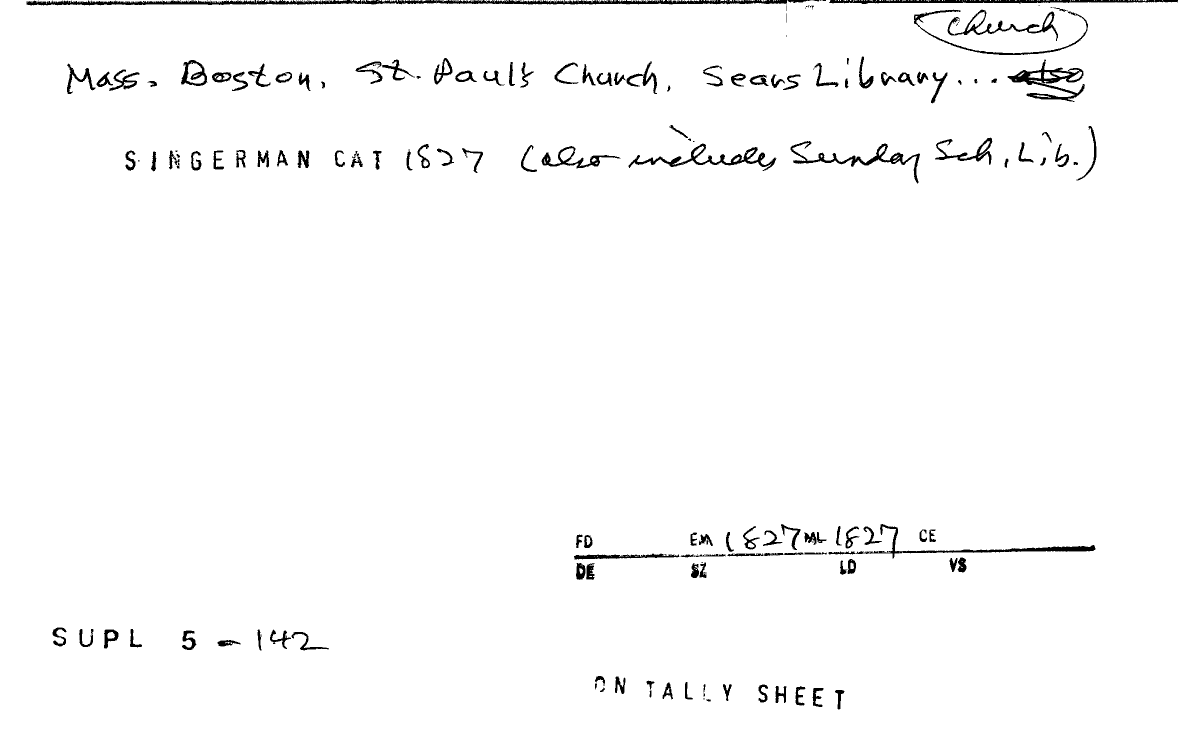 Church
Mass. Boston, St. Paul's Church, Sears Library...
SINGERMAN CAT 1827 (also includes Sunday Sch. Lib.)
FD EM 1827 ML 1827 CE
DE SZ LD VS
SUPL 5 - 142
ON TALLY SHEET